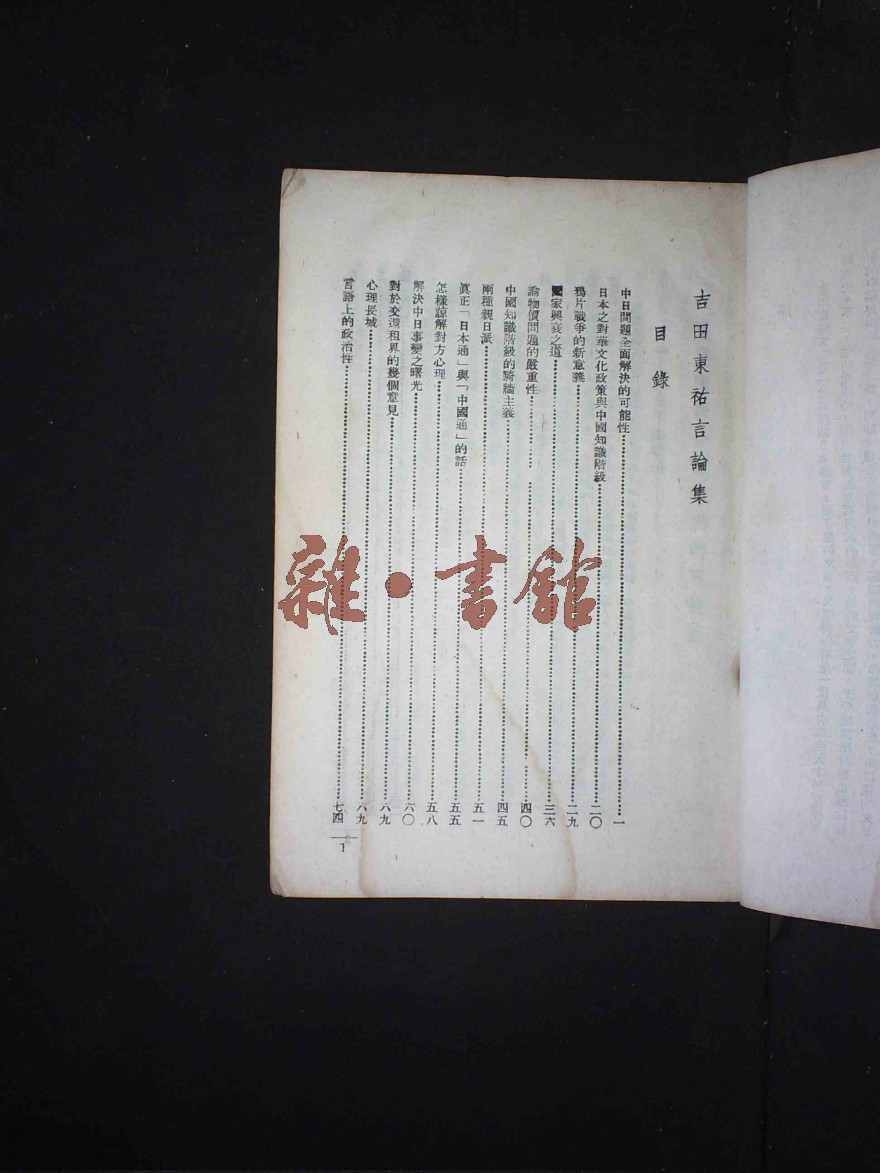 吉田東祐言論集
目錄
中日問題全面解決的可能性……一
日本之對華文化政策與中國知識階級……二〇
鴉片戰爭的新意義……二九
國家興衰之道……三六
論物價問題的嚴重性……四〇
中國知識階級的騎牆主義……四五
兩種親日派……五一
眞正「日本通」與「中國通」的話……五五
怎樣諒解對方心理……五八
解決中日事變之曙光……六〇
對於交還租界的幾個意見……六九
心理長城……六九
言語上的政治性……七四
1
雜·書館